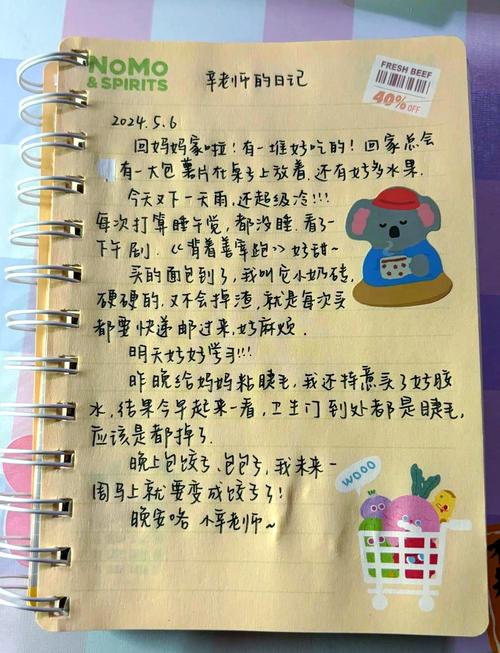 NOMO
& SPIRITS
FRESH BEEF
40% OFF
辛老师的日记
2024.5.6
回妈妈家啦!有一堆好吃的!回家总会
有一大包薯片在桌子上放着,还有好多水果.
今天又下一天雨,还超级冷!!!
每次打算睡午觉,都没睡.看了一
下午剧.《背着善宰跑》好甜~
买的面包到了,我叫它小奶砖,
硬硬的.又不会掉渣,就是每次买
都要快递邮过来,好麻烦.
明天好好学习!!!
昨晚给妈妈粘睫毛,我还特意买了好胶
水,结果今早起来一看,卫生门到处都是睫毛,
应该是都掉了.
晚上包饺子、包包子,我未来一
周马上就要变成饺子了!
晚安咯 小辛老师~
WOOO